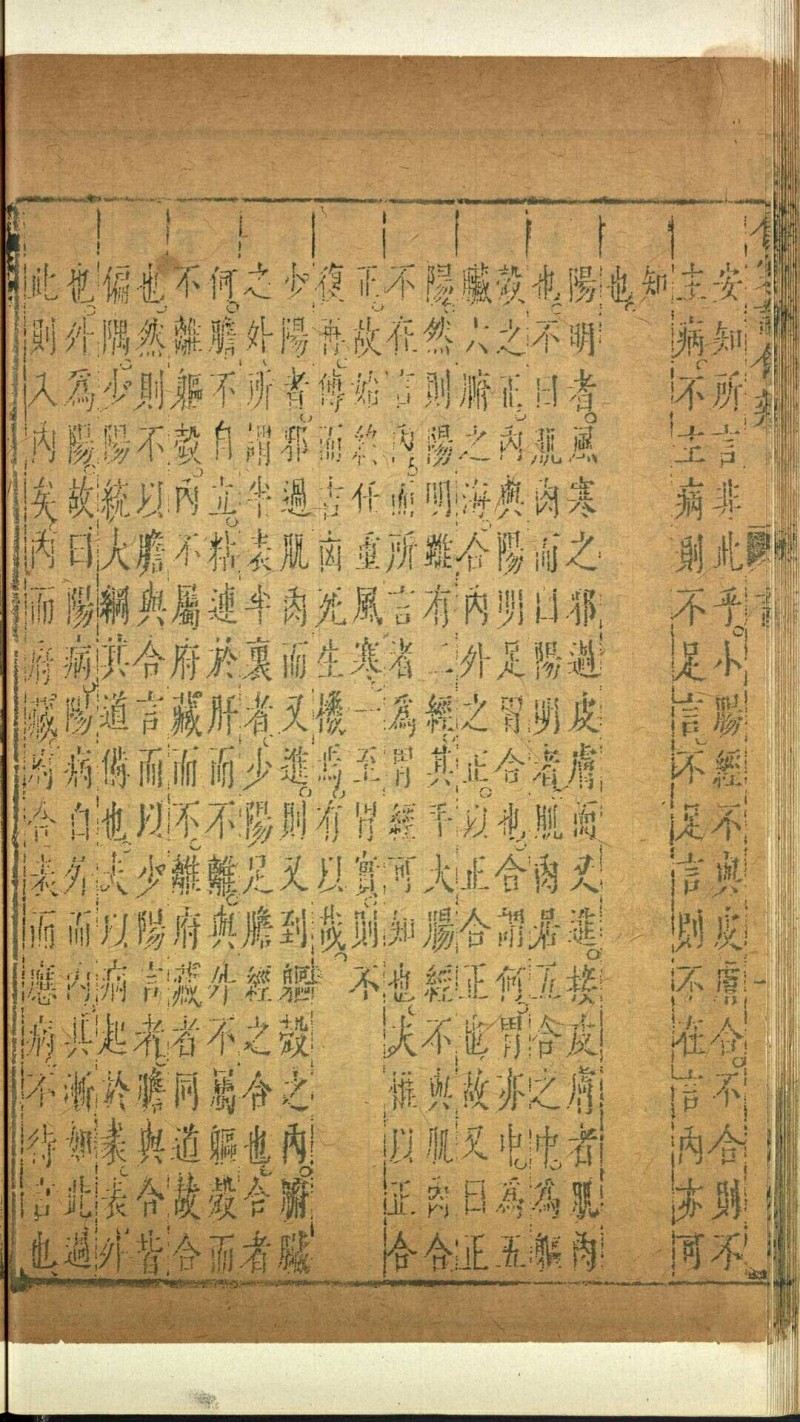 安知所言非此乎小腸經不與皮膚合不合則不
主病不主病則不足言不足言則不在言內亦可
知
也
陽明者風寒之邪過皮膚而又進接皮膚者肌肉
也不曰肌肉而曰陽明者肌肉居五合之中為軀
殼之正內與陽明足胃合也合謂何胃亦中為五
臟六腑之海合內外之正以正合正也故又曰正
陽然則陽明雖有二經其手大腸經不與肌肉合
不在言內而所言者為胃經可知也夫惟以正合
正故始終任重風寒一至胃實則不
復再傳而吉凶死生機焉有以哉
少陽者邪過肌肉而又進則又到軀殼之內腑臟
之外所謂半表半裏者少陽足膽經之合也合者
何膽不自立粘連於肝而不離與外不屬軀殼而
不離軀殼內不屬府藏而不離府藏者同道故合
也然則不以膽與合言而以少陽言者膽與合皆
偏隅少陽統大綱其道備也夫以病起於表表外
也外為陽故曰陽病陽病自外而內其漸如此過
此則入內矣內而府藏府合表而應病不待言也